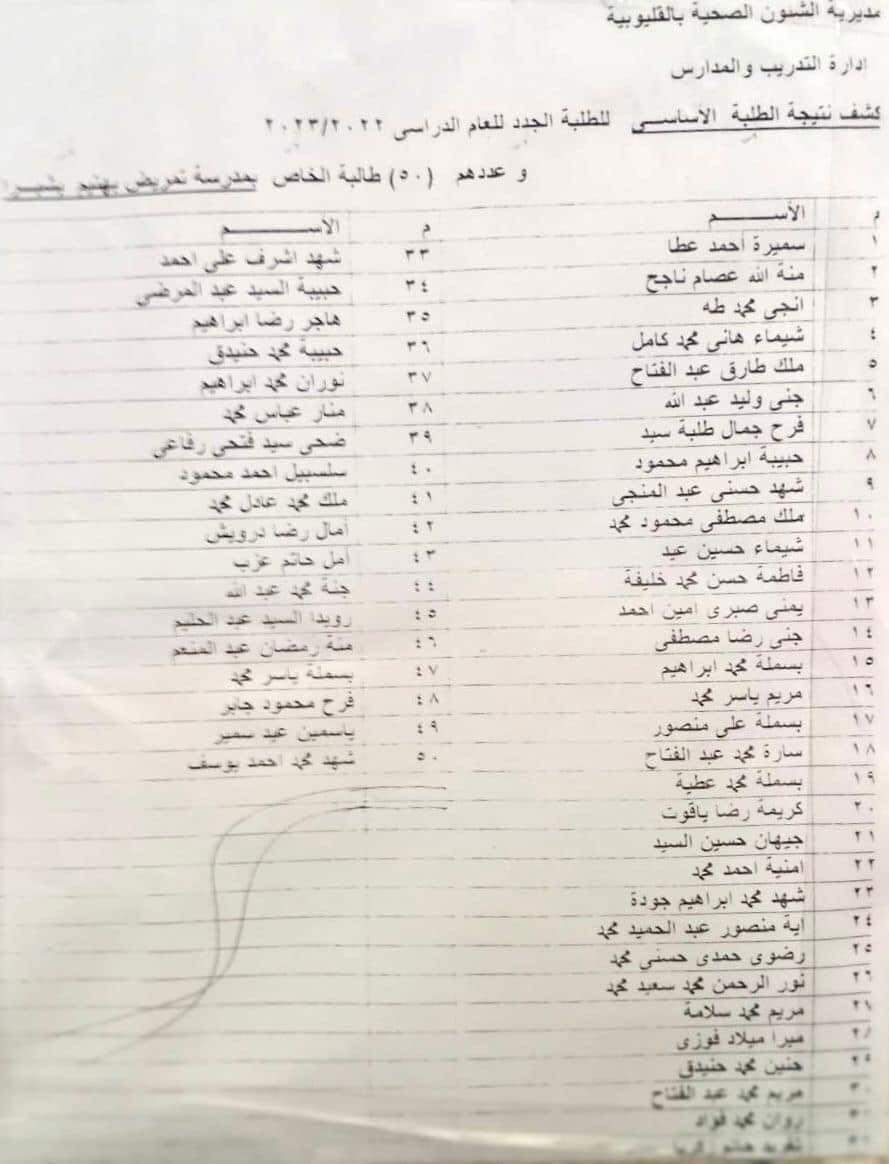 مديرية الشئون الصحية بالقليوبية
ادارة التدريب والمدارس
كشف نتيجة الطلبة الأساسى للطلبة الجدد للعام الدراسى ٢٠٢٣/٢٠٢٢
و عددهم (٥٠) طالبة الخاص بمدرسة تمريض بهتيم بشبرا
م الأســـم
١ سميرة احمد عطا
٢ منة الله عصام ناجح
٣ انجى محمد طه
٤ شيماء هانى محمد كامل
٥ ملك طارق عبد الفتاح
٦ جنى وليد عبد الله
٧ فرح جمال طلبة سيد
٨ حبيبة ابراهيم محمود
٩ شهد حسنى عبد المنجى
١٠ ملك مصطفى محمود محمد
١١ شيماء حسين عيد
١٢ فاطمة حسن محمد خليفة
١٣ يمنى صبرى امين احمد
١٤ جنى رضا مصطفى
١٥ بسملة محمد ابراهيم
١٦ مريم ياسر محمد
١٧ بسملة على منصور
١٨ سارة محمد عبد الفتاح
١٩ بسملة محمد عطية
٢٠ كريمة رضا ياقوت
٢١ جيهان حسين السيد
٢٢ امنية احمد محمد
٢٣ شهد محمد ابراهيم جودة
٢٤ اية منصور عبد الحميد محمد
٢٥ رضوى حمدى حسنى محمد
٢٦ نور الرحمن محمد سعيد محمد
مريم محمد سلامة
ميرا ميلاد فوزى
٢٩ حنين محمد حنيدق
٣٠ مريم محمد عبد الفتاح
روان محمد فواد
م الأســـم
٣٣ شهد اشرف على احمد
٣٤ حبيبة السيد عبد المرضي
٣٥ هاجر رضا ابراهيم
٣٦ حبيبة محمد حنيدق
٣٧ نوران محمد ابراهيم
٣٨ منار عباس محمد
٣٩ ضحى سيد فتحى رفاعي
٤٠ سلسبيل احمد محمود
٤١ ملك محمد عادل محمد
٤٢ أمال رضا درويش
٤٣ أمل حاتم عزب
٤٤ جنة محمد عبد الله
٤٥ رويدا السيد عبد الحليم
٤٦ منة رمضان عبد المنعم
٤٧ بسملة ياسر محمد
٤٨ فرح محمود جابر
٤٩ ياسمين عيد سمير
٥٠ شهد محمد احمد يوسف